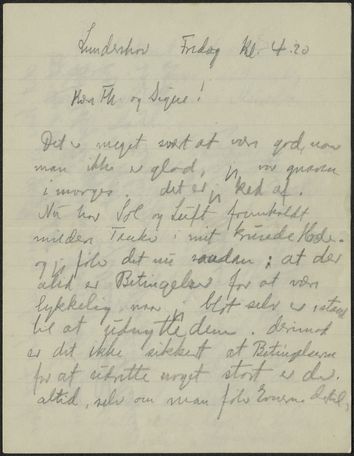 Lunderskov Fredag Kl. 4.20
Kære Th og Signe!
Det er meget svært at være god, naar
man ikke er glad, jeg var gnaven
i morges. det er jeg ked af.
Nu har Sol og Luft fremkaldt
mildere Tanker i mit Hoved.
og jeg føler det nu saadan; at der
altid er Betingelser for at være
lykkelig naar jeg blot selv er istand
til at udnytte dem. derimod
er det ikke sikkert at Betingelserne
for at udrette noget stort er der
altid, selv om man føler Evnerne dertil,